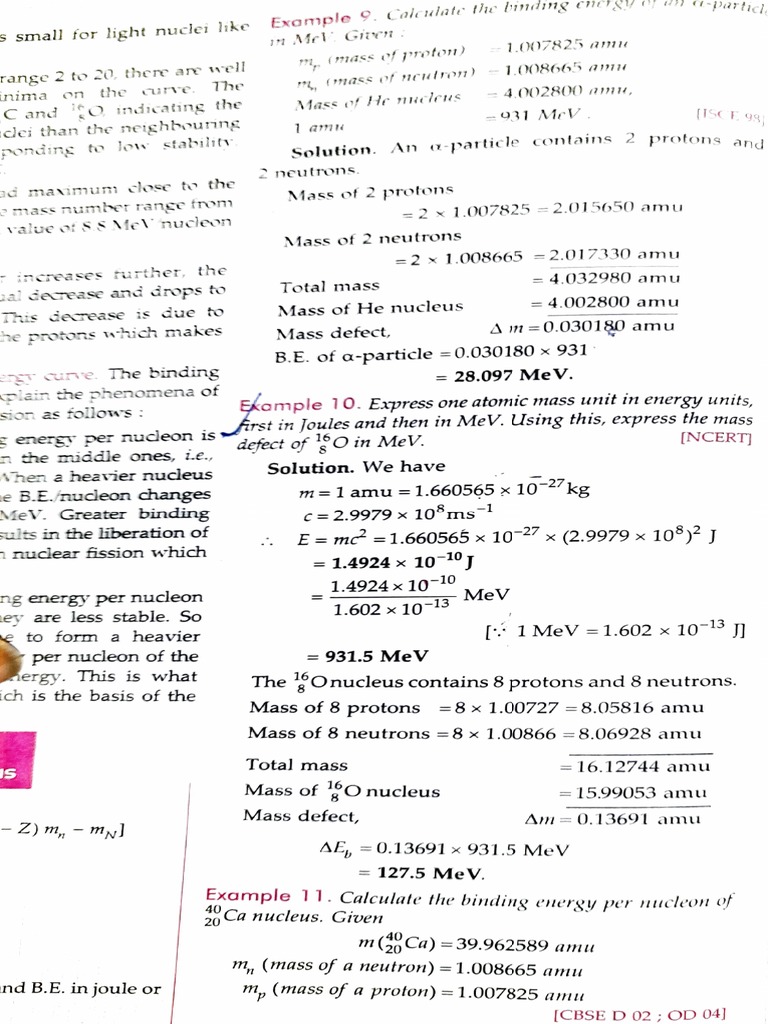 s small for light nuclei like
range 2 to 20, there are well
inima on the curve. The
C and ¹⁶₈O, indicating the
clei than the neighbouring
ponding to low stability.
ad maximum close to the
e mass number range from
value of 8.8 MeV/nucleon
r increases further, the
ual decrease and drops to
This decrease is due to
he protons which makes
ergy curve. The binding
xplain the phenomena of
sion as follows :
g energy per nucleon is
n the middle ones, i.e.,
When a heavier nucleus
e B.E./nucleon changes
MeV. Greater binding
sults in the liberation of
n nuclear fission which
ng energy per nucleon
ey are less stable. So
e to form a heavier
per nucleon of the
nergy. This is what
ich is the basis of the
us
– Z) mₙ – m_N]
and B.E. in joule or
Example 9. Calculate the binding energy of an α-particle
in MeV. Given :
mₚ (mass of proton) = 1.007825 amu
mₙ (mass of neutron) = 1.008665 amu
Mass of He nucleus = 4.002800 amu,
1 amu = 931 MeV. [ISCE 98]
Solution. An α-particle contains 2 protons and
2 neutrons.
Mass of 2 protons
= 2 × 1.007825 = 2.015650 amu
Mass of 2 neutrons
= 2 × 1.008665 = 2.017330 amu
Total mass = 4.032980 amu
Mass of He nucleus = 4.002800 amu
Mass defect, Δ m = 0.030180 amu
B.E. of α-particle = 0.030180 × 931
= 28.097 MeV.
Example 10. Express one atomic mass unit in energy units,
first in Joules and then in MeV. Using this, express the mass
defect of ¹⁶₈O in MeV. [NCERT]
Solution. We have
m = 1 amu = 1.660565 × 10⁻²⁷ kg
c = 2.9979 × 10⁸ ms⁻¹
∴ E = mc² = 1.660565 × 10⁻²⁷ × (2.9979 × 10⁸)² J
= 1.4924 × 10⁻¹⁰ J
= 1.4924 × 10⁻¹⁰ / 1.602 × 10⁻¹³ MeV
[∵ 1 MeV = 1.602 × 10⁻¹³ J]
= 931.5 MeV
The ¹⁶₈O nucleus contains 8 protons and 8 neutrons.
Mass of 8 protons = 8 × 1.00727 = 8.05816 amu
Mass of 8 neutrons = 8 × 1.00866 = 8.06928 amu
Total mass = 16.12744 amu
Mass of ¹⁶₈O nucleus = 15.99053 amu
Mass defect, Δm = 0.13691 amu
ΔE_b = 0.13691 × 931.5 MeV
= 127.5 MeV.
Example 11. Calculate the binding energy per nucleon of
⁴⁰₂₀Ca nucleus. Given
m(⁴⁰₂₀Ca) = 39.962589 amu
mₙ (mass of a neutron) = 1.008665 amu
mₚ (mass of a proton) = 1.007825 amu
[CBSE D 02 ; OD 04]